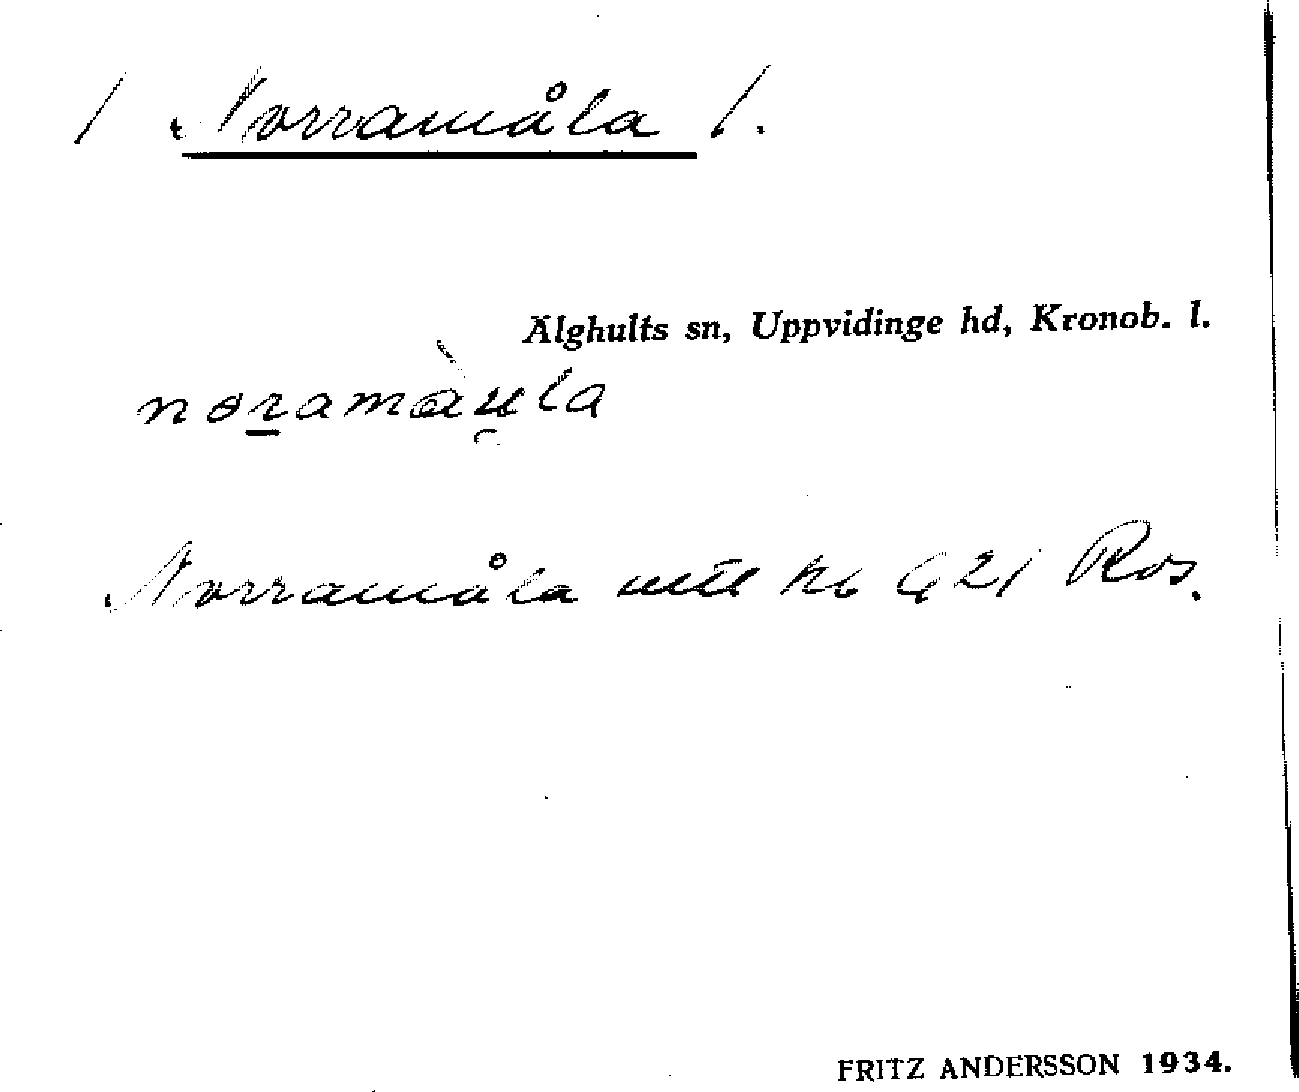 / Norramåla /.
Älghults sn, Uppvidinge hd, Kronob. l.
Norramåla 621 Ros.
FRITZ ANDERSSON 1934.